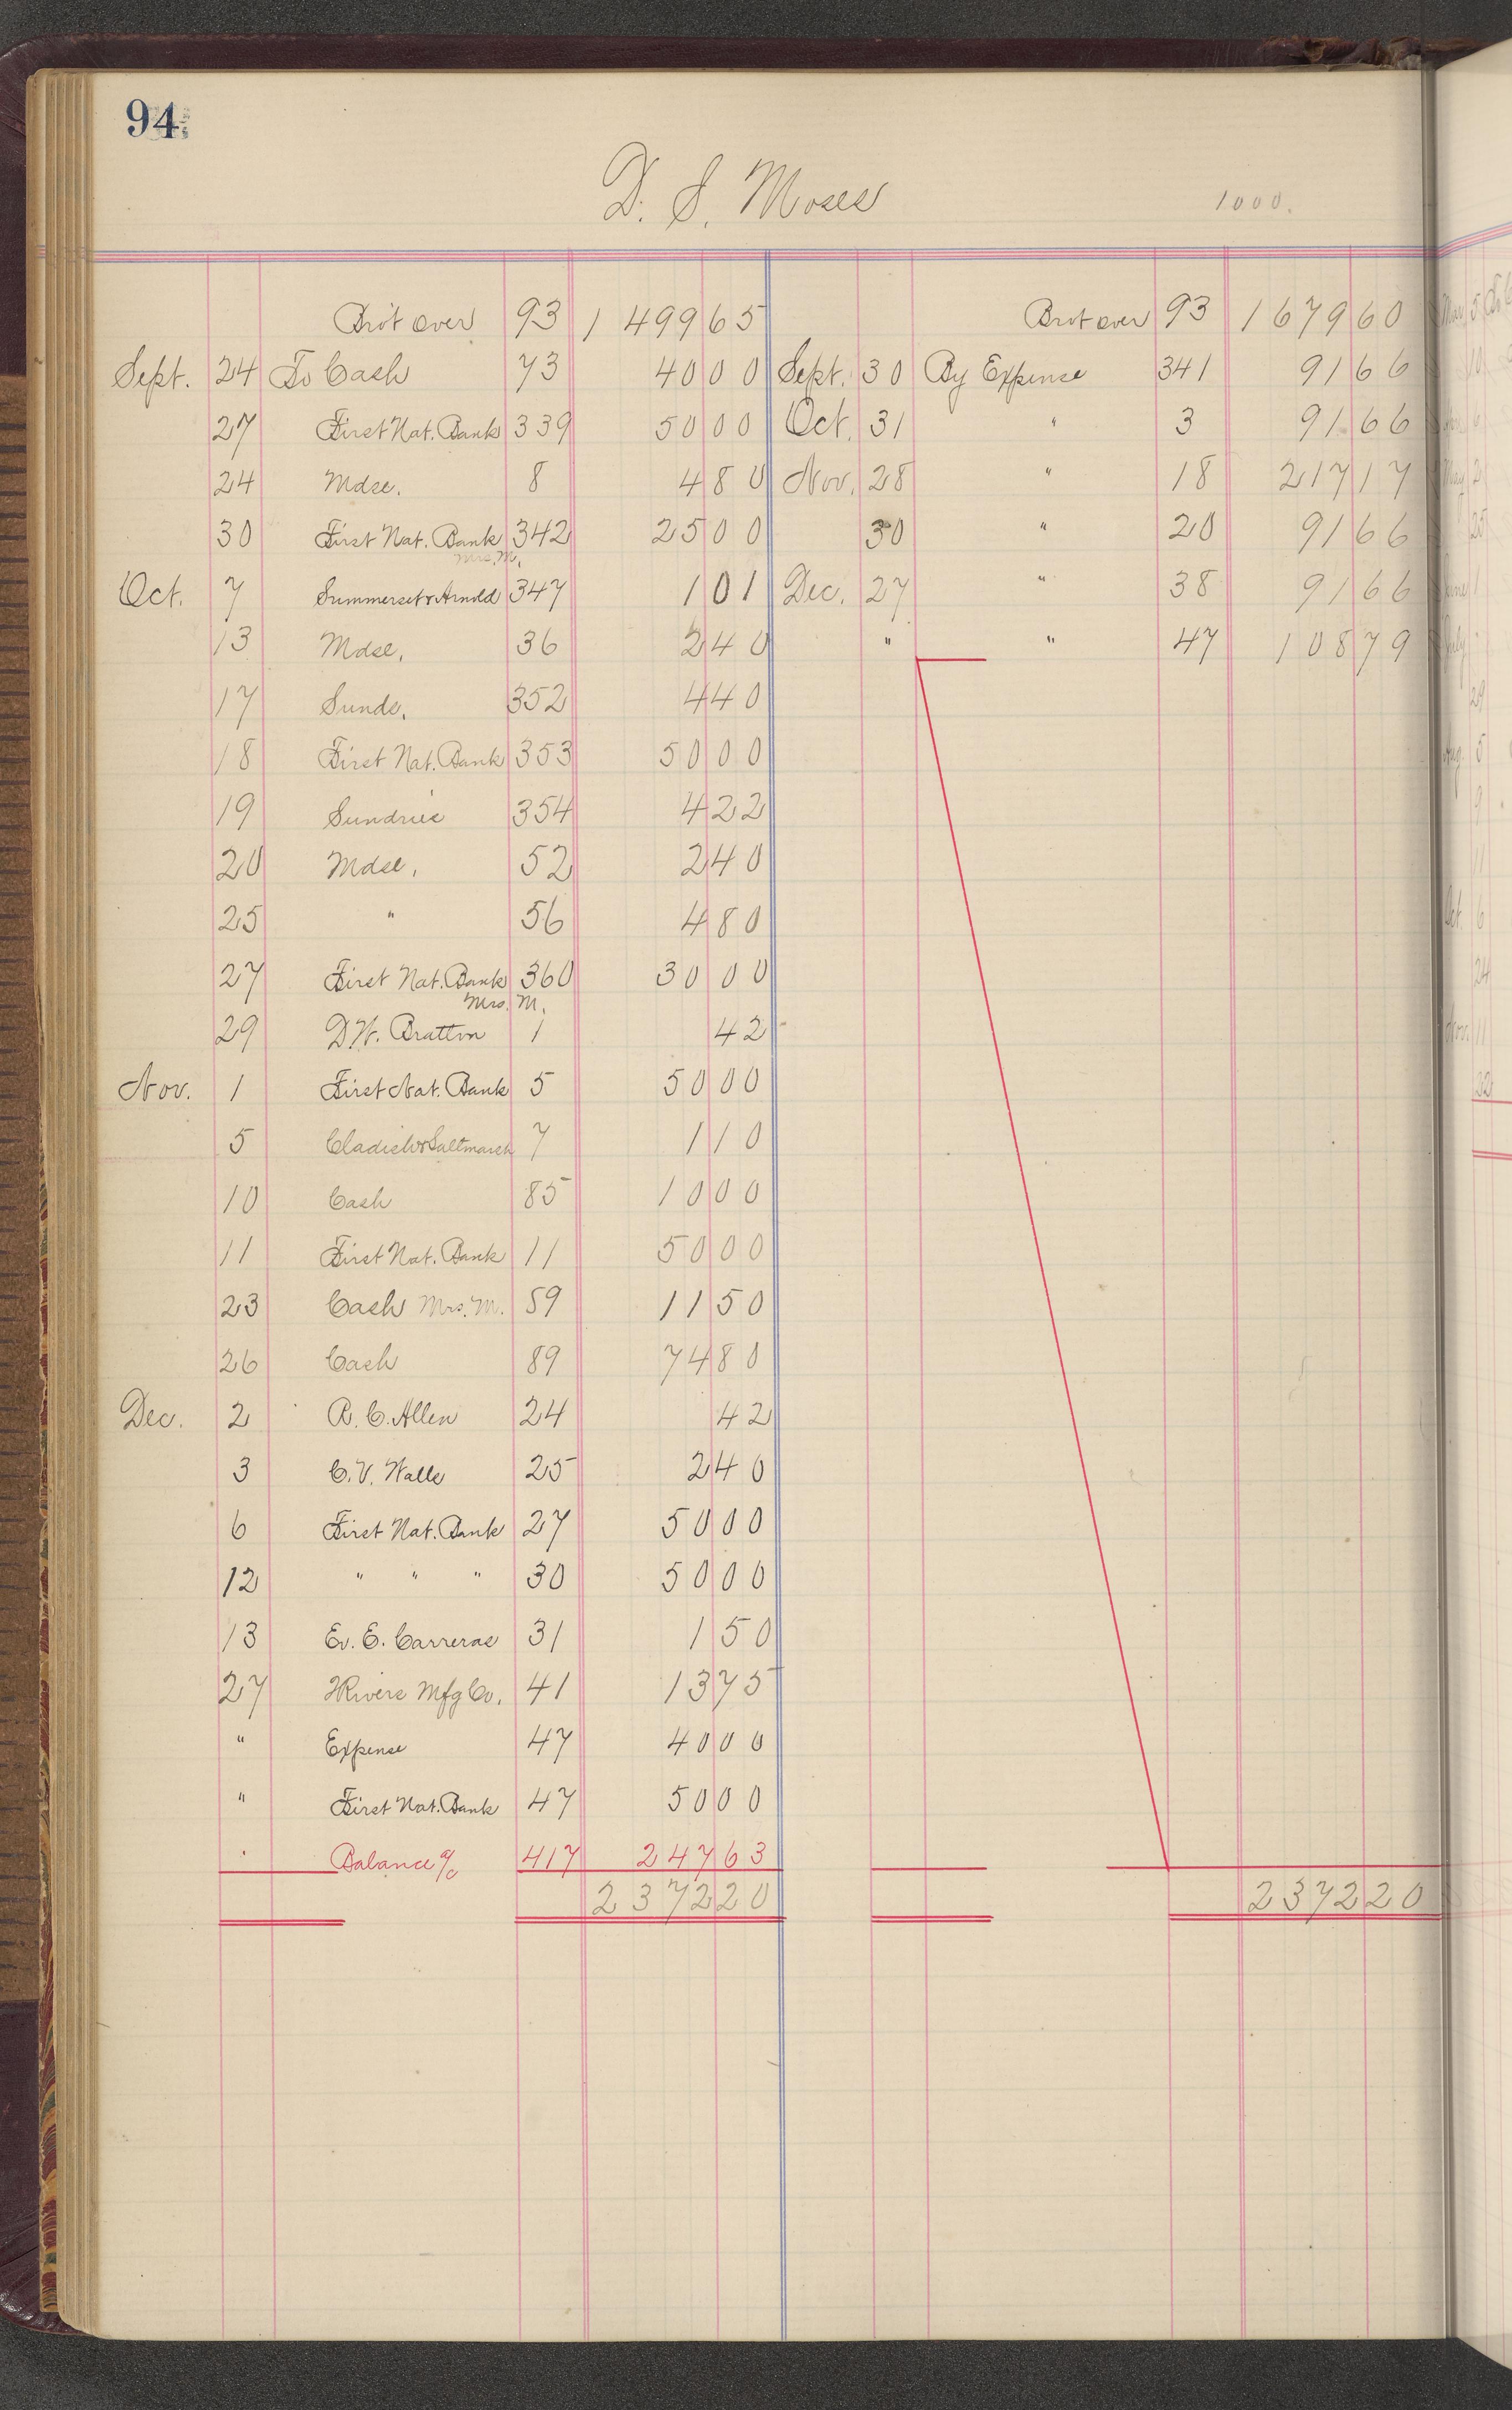 94
D. S. Moses
1000.
Brot over 93 1 499 65
Sept. 24 To Cash 73 40 00
27 First Nat. Bank 339 50 00
24 Mdse. 8 4 80
30 First Nat. Bank 342 25 00
Mrs. M.
Oct. 7 Summerset & Arnold 347 1 01
13 Mdse. 36 2 40
17 Sunds. 352 4 40
18 First Nat. Bank 353 50 00
19 Sundries 354 4 22
20 Mdse. 52 2 40
25 " 56 4 80
27 First Nat. Bank 360 30 00
Mrs. M.
29 D.W. Bratton 1 42
Nov. 1 First Nat. Bank 5 50 00
5 Cladish & Saltmarsh 7 1 10
10 Cash 85 10 00
11 First Nat. Bank 11 50 00
23 Cash Mrs. M. 59 11 50
26 Cash 89 74 80
Dec. 2 R. C. Allen 24 42
3 C. V. Walls 25 2 40
6 First Nat. Bank 27 50 00
12 " " " 30 50 00
13 Ev. E. Carreras 31 1 50
27 3 Rivers Mfg Co. 41 13 75
" Expense 47 40 00
" First Nat. Bank 47 50 00
" Balance a/c 417 247 63
2372 20
Brot over 93 1 679 60
Sept. 30 By Expense 341 91 66
Oct. 31 " 3 91 66
Nov. 28 " 18 217 17
30 " 20 91 66
Dec. 27 " 38 91 66
" " 47 108 79
2372 20